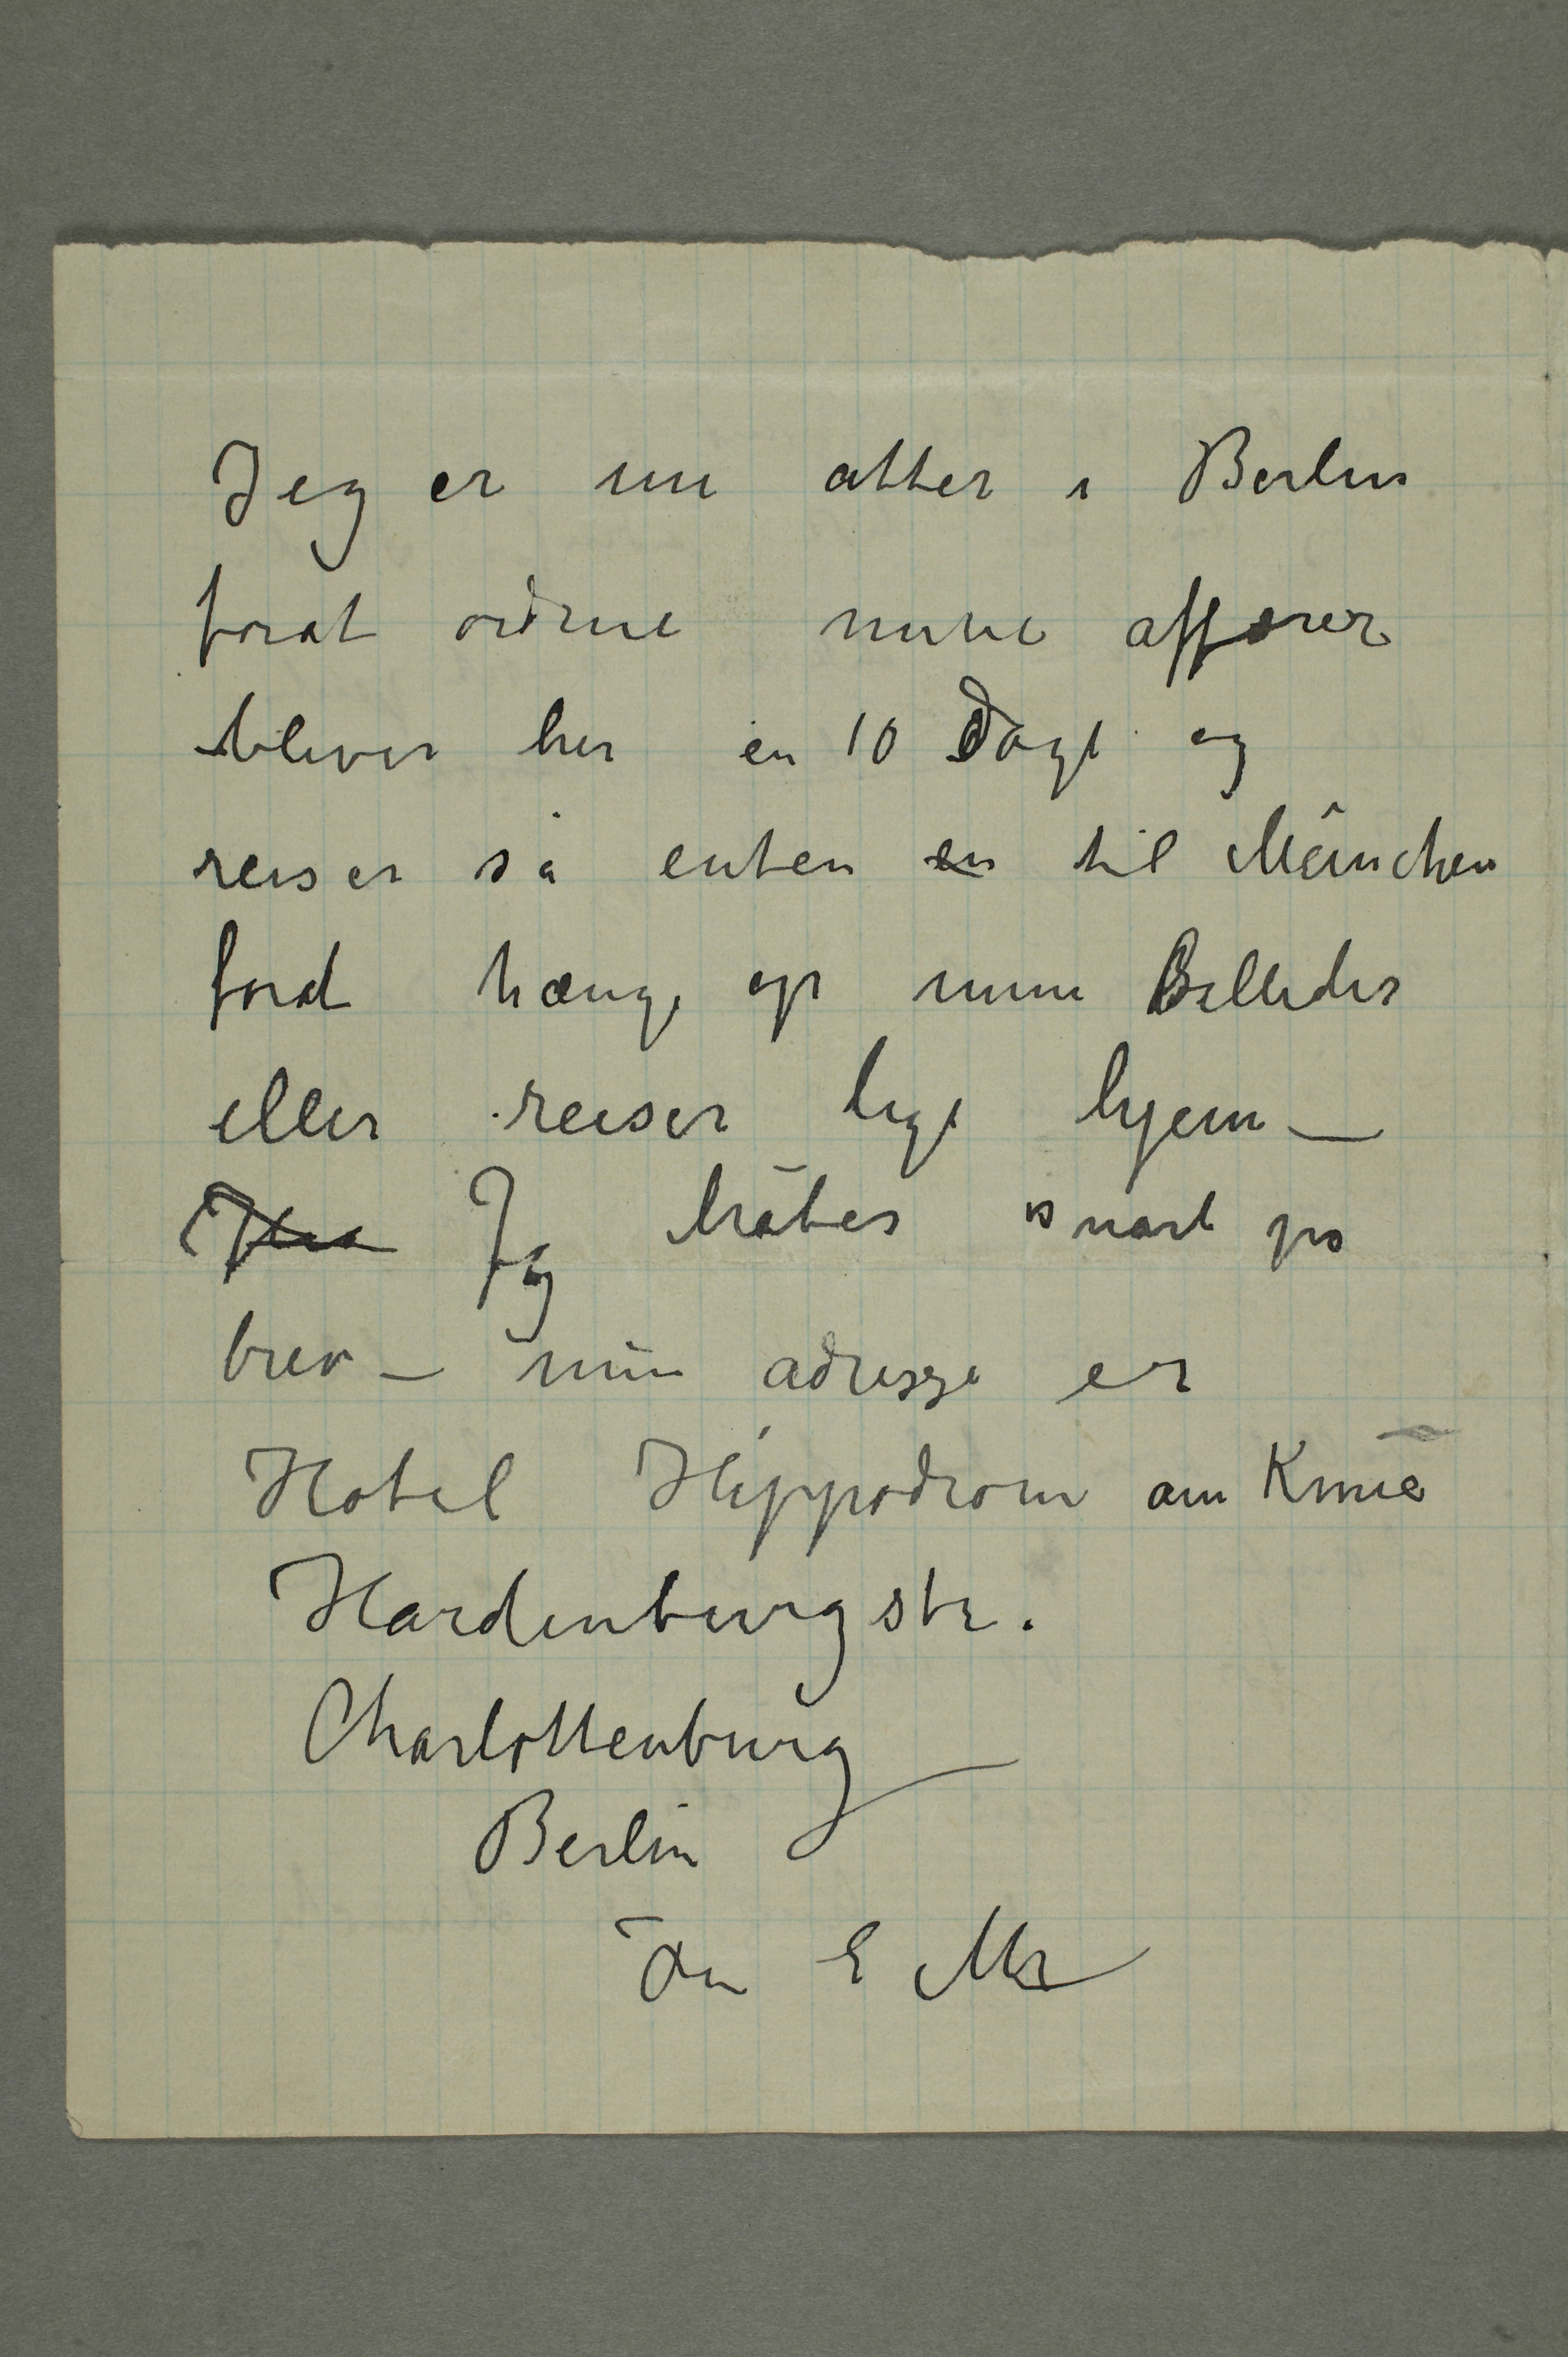 Jeg er nu atter i Berlin
forat ordne mine affærer
bliver her en 10 Dage og
reiser så enten en til München
forat hænge op mine Billeder
eller reiser lige hjem –
Jeg håber snart på
brev – min adresse er
Hotel Hippodrom am Knie
Hardenburgstr.
Charlottenburg
Berlin
Din E M